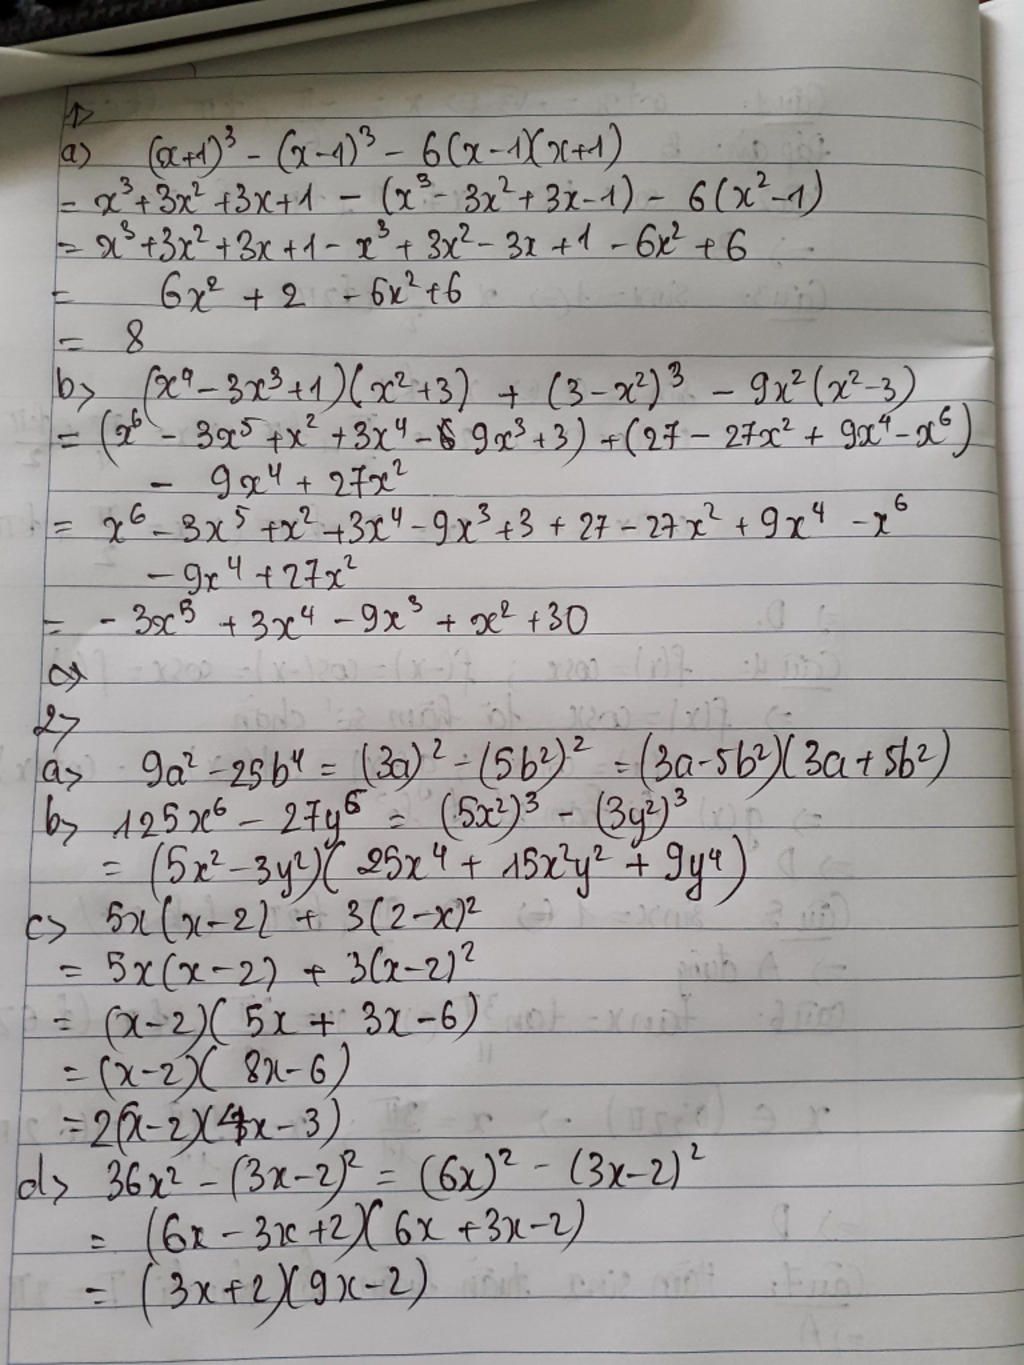 1>
a> (x+1)³ - (x-1)³ - 6(x-1)(x+1)
= x³+3x²+3x+1 - (x³-3x²+3x-1) - 6(x²-1)
= x³+3x²+3x+1-x³+3x²-3x+1-6x²+6
= 6x² + 2 - 6x²+6
= 8
b> (x⁴-3x³+1)(x²+3) + (3-x²)³ - 9x²(x²-3)
= (x⁶ - 3x⁵+x²+3x⁴- 9x³+3)+(27-27x²+9x⁴-x⁶)
- 9x⁴+27x²
= x⁶-3x⁵+x²+3x⁴-9x³+3+27-27x²+9x⁴-x⁶
-9x⁴+27x²
= -3x⁵+3x⁴-9x³+x²+30
c>
2>
a> 9a²-25b⁴ = (3a)²-(5b²)² = (3a-5b²)(3a+5b²)
b> 125x⁶-27y⁶ = (5x²)³ - (3y²)³
= (5x²-3y²)(25x⁴+15x²y²+9y⁴)
c> 5x(x-2) + 3(2-x)²
= 5x(x-2) + 3(x-2)²
= (x-2)(5x+3x-6)
= (x-2)(8x-6)
= 2(x-2)(4x-3)
d> 36x²-(3x-2)² = (6x)² - (3x-2)²
= (6x-3x+2)(6x+3x-2)
= (3x+2)(9x-2)